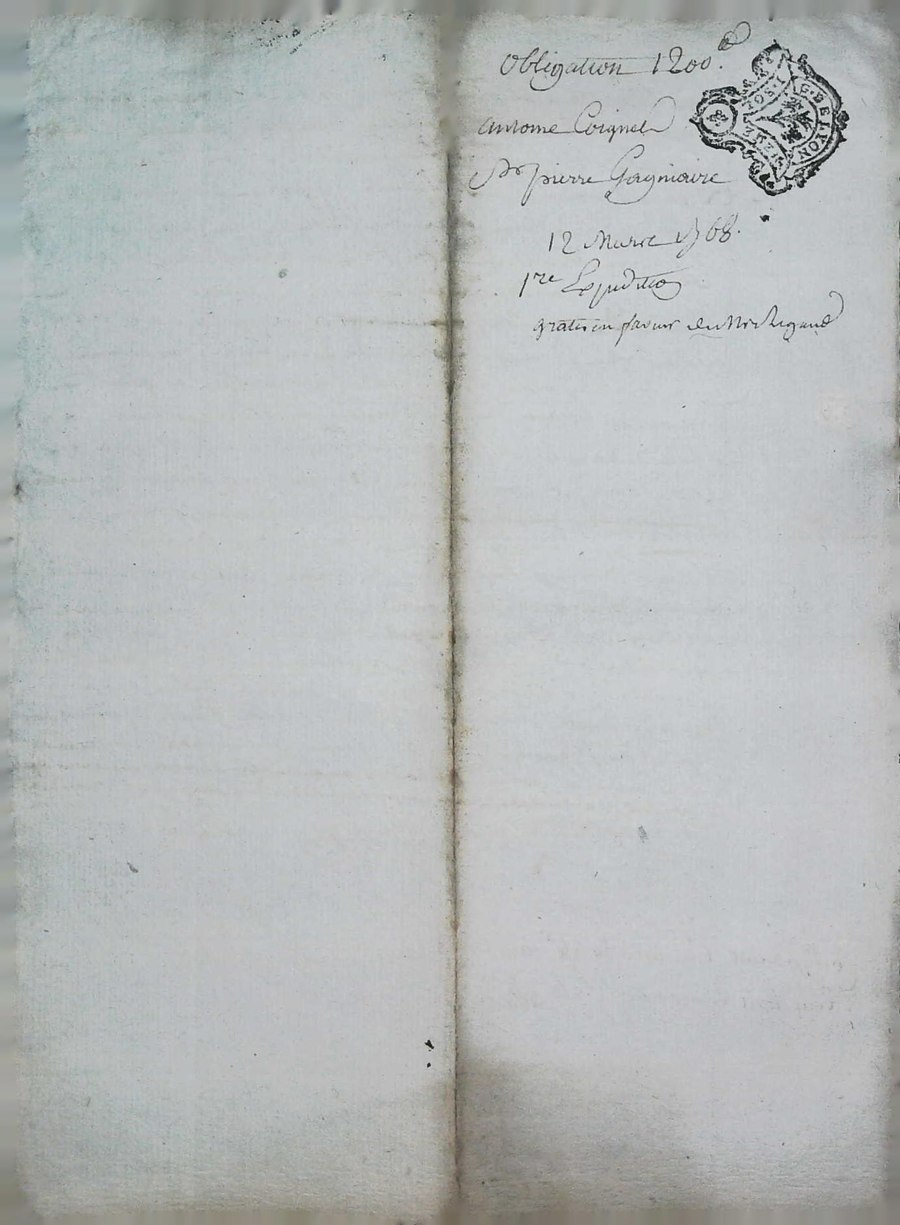 Obligation 1200#
antoine Coignet
Sr pierre Gagniaire
12 Mars 1768.
1re Expedition
gratis en faveur du Mr Rigaud
G. DE LYON